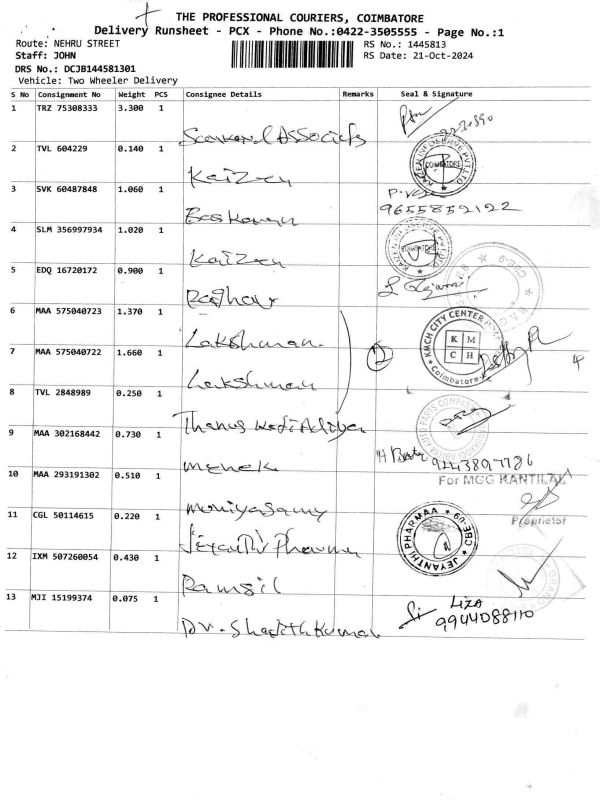 THE PROFESSIONAL COURIERS, COIMBATORE
Delivery Runsheet - PCX - Phone No.:0422-3505555 - Page No.:1
Route: NEHRU STREET
RS No.: 1445813
Staff: JOHN
RS Date: 21-Oct-2024
DRS No.: DCJB144581301
Vehicle: Two Wheeler Delivery
S No Consignment No Weight PCS Consignee Details Remarks Seal & Signature
1 TRZ 75308333 3.300 1
Associates
2 TVL 604229 0.140 1
Kaizen
COIMBATORE
3 SVK 60487848 1.060 1
9655852122
Baskaran
4 SLM 356997934 1.020 1
Kaizen
5 EDQ 16720172 0.900 1
Raghav
6 MAA 575040723 1.370 1
Lakshman
KMCH CITY CENTER
K M
C H
Coimbatore
7 MAA 575040722 1.660 1
Lakshman
8 TVL 2848989 0.250 1
Thanus
9 MAA 302168442 0.730 1
9243897786
For MGG KANTILAL
menek
10 MAA 293191302 0.510 1
Proprietor
muniyasamy
11 CGL 50114615 0.220 1
JEYANTHI PHARMAA
CBE-09
Jeyanthi Pharma
12 IXM 507260054 0.430 1
Ramsil
13 MJI 15199374 0.075 1
LIZA
9944088110
Dr. Shajith Kumar